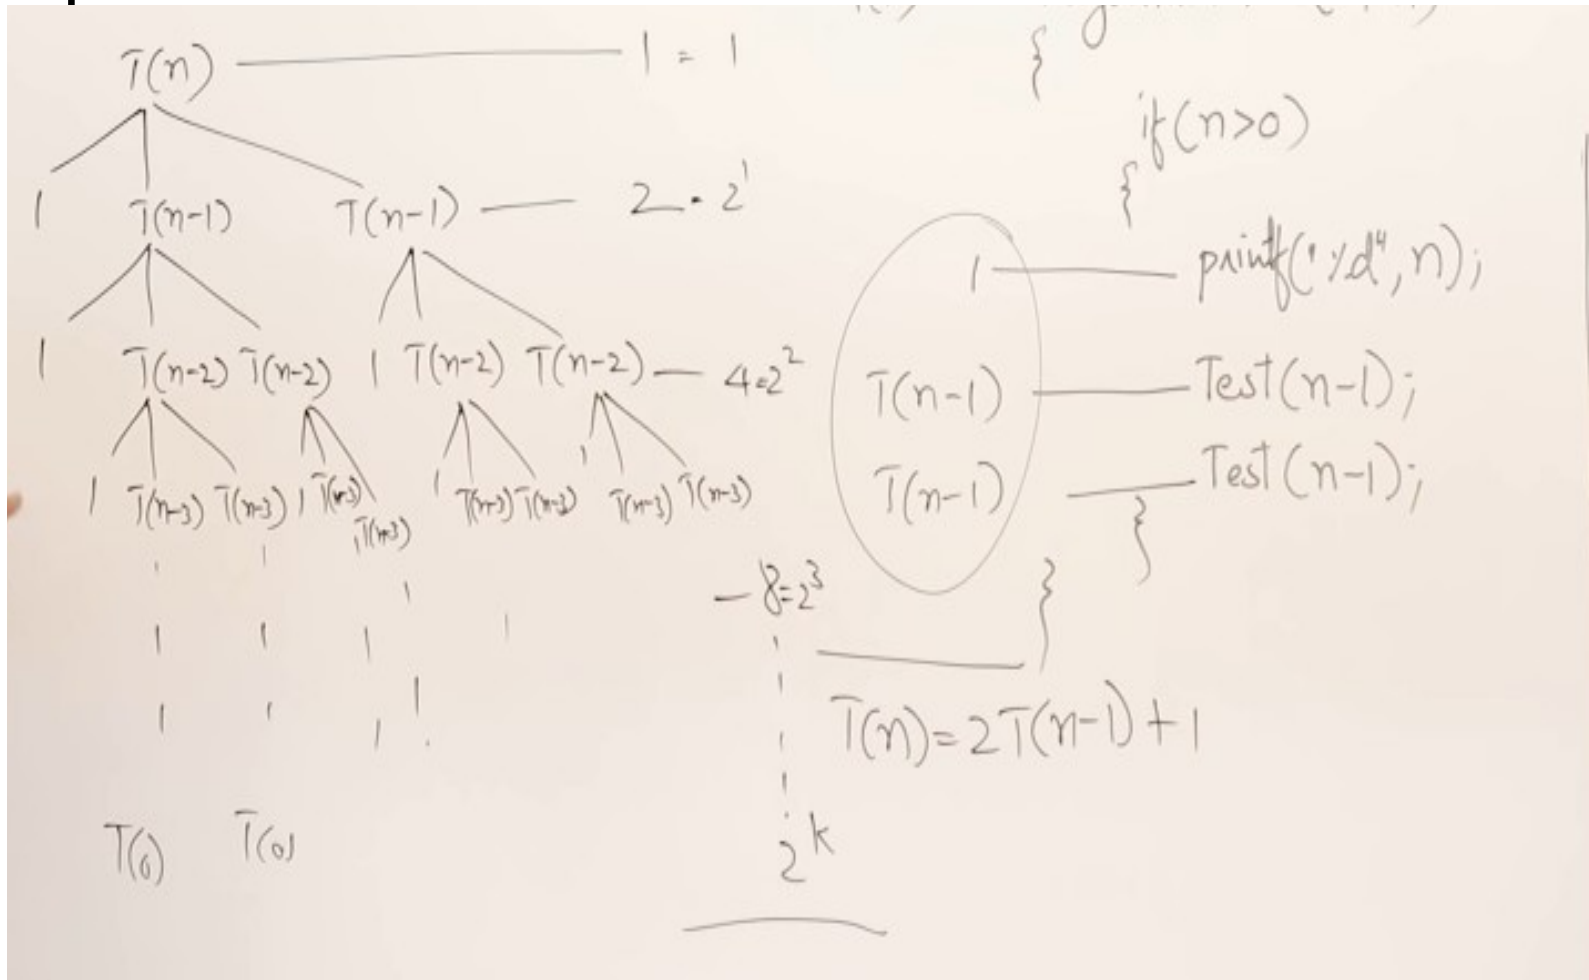 T(n) — 1 = 1
1 T(n-1) T(n-1) — 2 = 2¹
1 T(n-2) T(n-2) 1 T(n-2) T(n-2) — 4=2²
1 T(n-3) T(n-3) 1 T(n-3) T(n-3) 1 T(n-3) T(n-3) 1 T(n-3) T(n-3)
— 8=2³
T(0) T(0)
2ᵏ
{
if(n>0)
{
1 — printf("%d", n);
T(n-1) — Test(n-1);
T(n-1) — Test(n-1);
}
}
T(n)=2T(n-1)+1